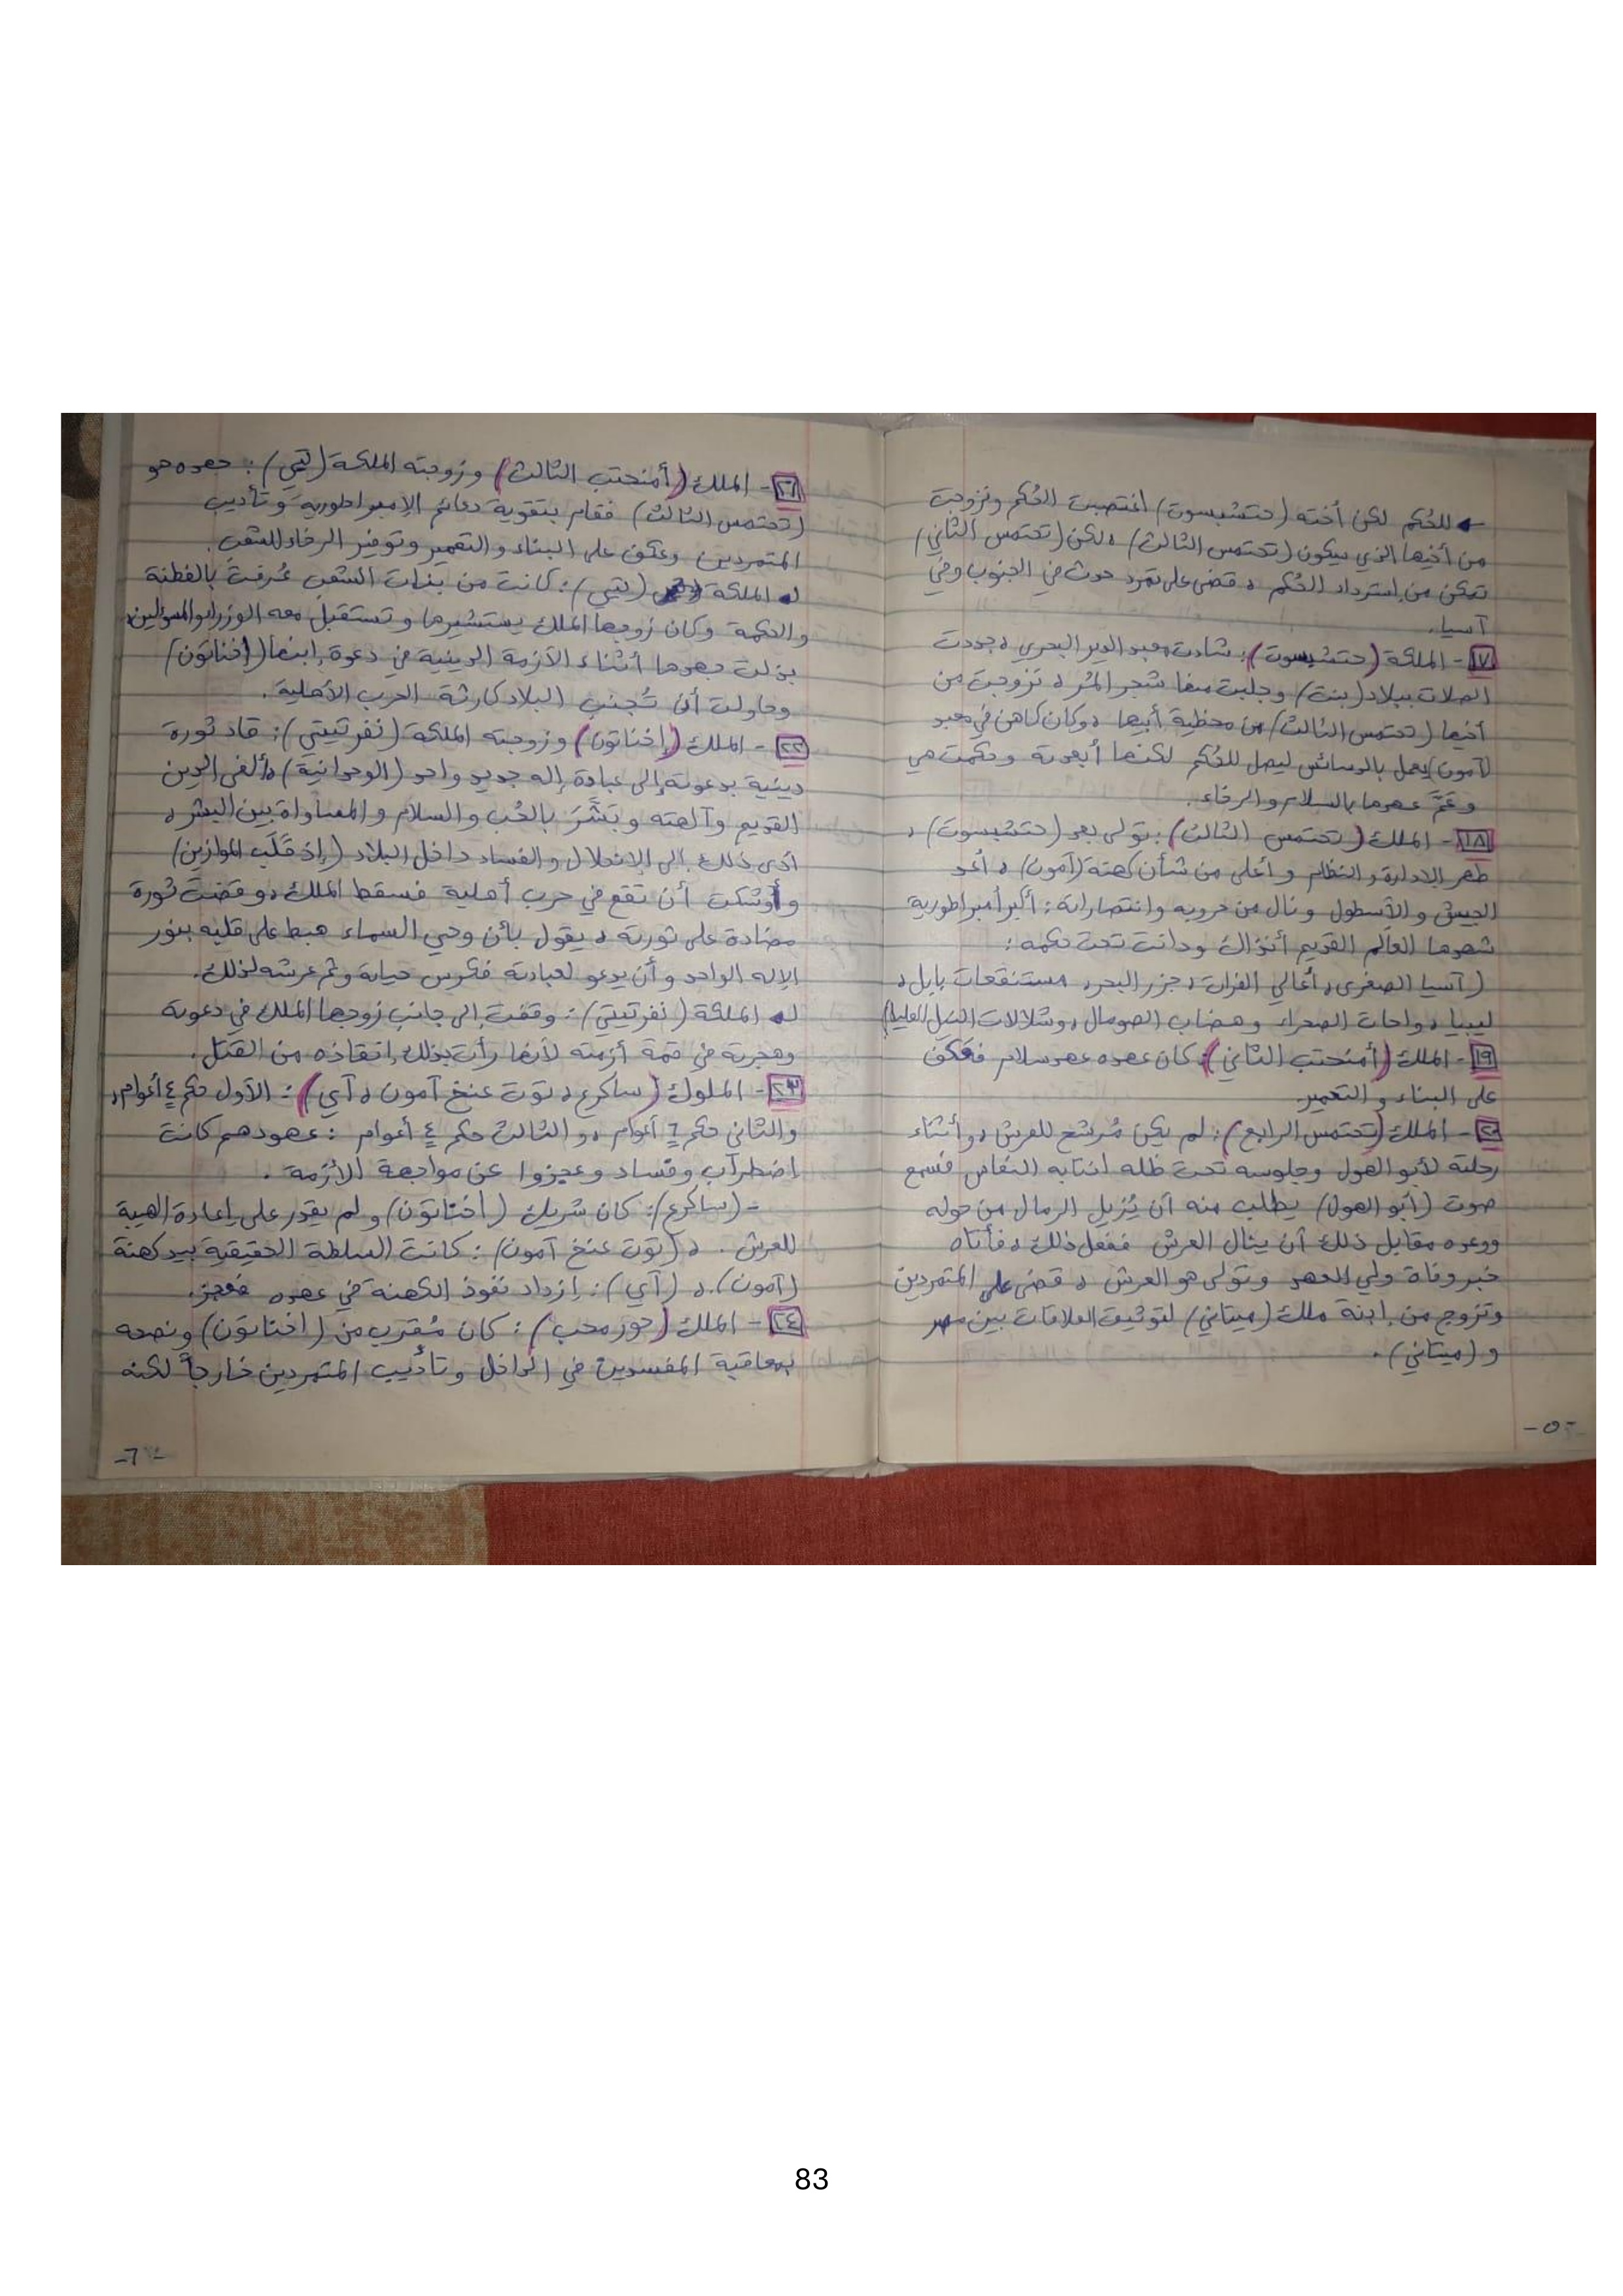 ← للحُكم لكن أخته (حتشبسوت) اغتصبت الحُكم وتزوجت
من أخيها الذي سيكون (تحتمس الثالث)، لكن (تحتمس الثاني)
تمكن من إسترداد الحُكم، قضى على تمرد حدث في الجنوب وفي
آسيا.
١٧- الملكة (حتشبسوت): شادت معبد الدير البحري، جددت
الصلات ببلاد (بنت) وجلبت منها شجر المُر، تزوجت من
أخيها (تحتمس الثالث) من محظية أبيها، وكان كاهن في معبد
(آمون) يعمل بالدسائس ليصل للحُكم لكنها أبعدته وحكمت هي
وعَمَّ عهدها بالسلام والرخاء.
١٨- الملك (تحتمس الثالث): تولى بعد (حتشبسوت)،
طهر الإدارة والنظام وأعلى من شأن كهنة (آمون)، أعد
الجيش والأسطول ونال من حروبه وانتصاراته: أكبر أمبراطورية
شهدها العالم القديم أنذاك ودانت تحت حكمه:
(آسيا الصغرى، أعالي الفرات، جزر البحر، مستنقعات بابل،
ليبيا، واحات الصحراء وهضاب الصومال، وشلالات النيل العليا)
١٩- الملك (أمنحتب الثاني): كان عهده عهد سلام فعكف
على البناء والتعمير.
٢٠- الملك (تحتمس الرابع): لم يكن مُرشح للعرش، وأثناء
رحلته لأبو الهول وجلوسه تحت ظله انتابه النعاس فسمع
صوت (أبو الهول) يطلب منه أن يُزيل الرمال من حوله
ووعده مقابل ذلك أن ينال العرش ففعل ذلك، فأتاه
خبر وفاة ولي العهد وتولى هو العرش، قضى على المتمردين
وتزوج من إبنة ملك (ميتاني) لتوثيق العلاقات بين مصر
و (ميتاني).
-٥-
٢١- الملك (أمنحتب الثالث) وزوجته الملكة (تيي): جده هو
(تحتمس الثالث) فقام بتقوية دعائم الإمبراطورية وتأديب
المتمردين وعكف على البناء والتعمير وتوفير الرخاء للشعب.
↲ الملكة (تيي): كانت من بنات الشعب عُرفت بالفطنة
والحكمة وكان زوجها الملك يستشيرها وتستقبل معه الوزراء والمسؤلين،
بذلت جهدها أثناء الأزمة الدينية في دعوة إبنها (إخناتون)
وحاولت أن تُجنب البلاد كارثة الحرب الأهلية.
٢٢- الملك (إخناتون) وزوجته الملكة (نفرتيتي): قاد ثورة
دينية بدعوته إلى عبادة إله جديد واحد (الوحدانية)، ألغى الدين
القديم وآلهته وبَشَّرَ بالحُب والسلام والمساواة بين البشر،
أدى ذلك إلى الإنحلال والفساد داخل البلاد (إذ قَلَب الموازين)
وأوشكت أن تقع في حرب أهلية فسقط الملك، وقضت ثورة
مضادة على ثورته، يقول بأن وحي السماء هبط على قلبه بنور
الإله الواحد وأن يدعو لعبادته فكرس حياته وثم عرشه لذلك.
↲ الملكة (نفرتيتي): وقفت إلى جانب زوجها الملك في دعوته
وهجرته في قمة أزمته لأنها رأت بذلك إنقاذه من القتل.
٢٣- الملوك (ساكرع، توت عنخ آمون، آي): الأول حكم ٤ أعوام،
والثاني حكم ٦ أعوام، والثالث حكم ٤ أعوام: عهودهم كانت
اضطراب وفساد وعجزوا عن مواجهة الأزمة.
- (ساكرع): كان شريك (إخناتون) ولم يقدر على إعادة الهيبة
للعرش. ، (توت عنخ آمون): كانت السلطة الحقيقية بيد كهنة
(آمون). ، (آي): إزداد نفوذ الكهنة في عهده فعجز.
٢٤- الملك (حور محب): كان مُقرب من (اخناتون) ونصحه
بمعاقبة المفسدين في الداخل وتأديب المتمردين خارجاً لكنه
-٦-
83